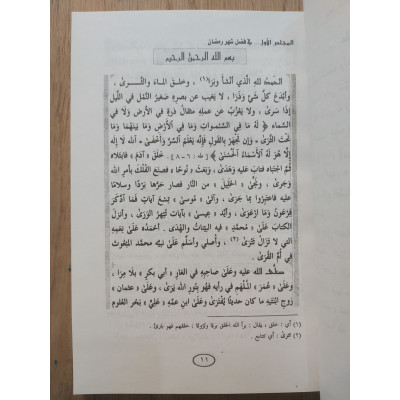 المجلس الأول .. في فضل شهر رمضان
بسم الله الرحمن الرحيم
الحمدُ للهِ الَّذي أنْشَأ وبَرَا (١) ، وخلقَ الماءَ والثَّرى ،
وأبْدَعَ كلَّ شَيْءٍ وذَرَا ، لا يَغيب عن بصرِه صَغيرُ النَّمْل في اللَّيل
إِذَا سَرى ، ولا يَعْزُبُ عن علمه مثقالُ ذرةٍ في الأرضِ ولَا في
السَّماء ﴿ لَهُ مَا فِي السَّمَٰوَاتِ وَمَا فِي الْأَرْضِ وَمَا بَيْنَهُمَا وَمَا
تَحْتَ الثَّرَىٰ . وَإِن تَجْهَرْ بِالْقَوْلِ فَإِنَّهُ يَعْلَمُ السِّرَّ وَأَخْفَى . اللَّهُ لَا إِلَٰهَ
إِلَّا هُوَ لَهُ الْأَسْمَاءُ الْحُسْنَىٰ ﴾ [ طه : ٦ - ٨ ] . خَلَقَ « آدَمَ » فابتلاه
ثُم اجْتَبَاه فتاب عليه وهَدَى ، وبَعَثَ « نُوحًا » فصنَع الفُلْكَ بأمر الله
وجَرَى ، ونَجَّى « الخَليلَ » من النَّارِ فصار حَرُّها بَرْدًا وسلامًا
عليه فاعتَبِرُوا بِما جَرَى ، وآتَى « مُوسى » تِسْعَ آياتٍ فَمَا ادَّكَرَ
فِرْعَوْنُ وما ارْعَوَى ، وأيَّدَ « عيسى » بآياتٍ تَبْهَرُ الوَرَى ، وأنْزلَ
الكتابَ على « مُحمدٍ » فيه البيّناتُ والهُدَى . أحْمَدُه على نعمِه
التي لا تَزَالُ تَتْرَى (٢) ، وأصلِّي وأسَلِّم على نبيِّه محمدٍ المبْعُوثِ
في أُمِّ القُرَى .
صلى الله عليه وعَلَى صاحِبِهِ في الْغارِ « أبي بكرٍ » بلا مِرَا ،
وعَلَى « عُمَرَ » المُلْهَمِ في رأيه فهُو بِنُورِ الله يَرَى ، وعَلَى « عثمانَ »
زوجِ ابْنَتَيْهِ ما كان حديثًا يُفْتَرَى وعَلَى ابن عمِّهِ « عليٍّ » بَحْرِ العُلومِ
(١) أي : خلق ، يقال : برأ الله الخلق برءًا وبروءًا : خلقهم فهو بارئ .
(٢) تترى : أي تتابع .
١١